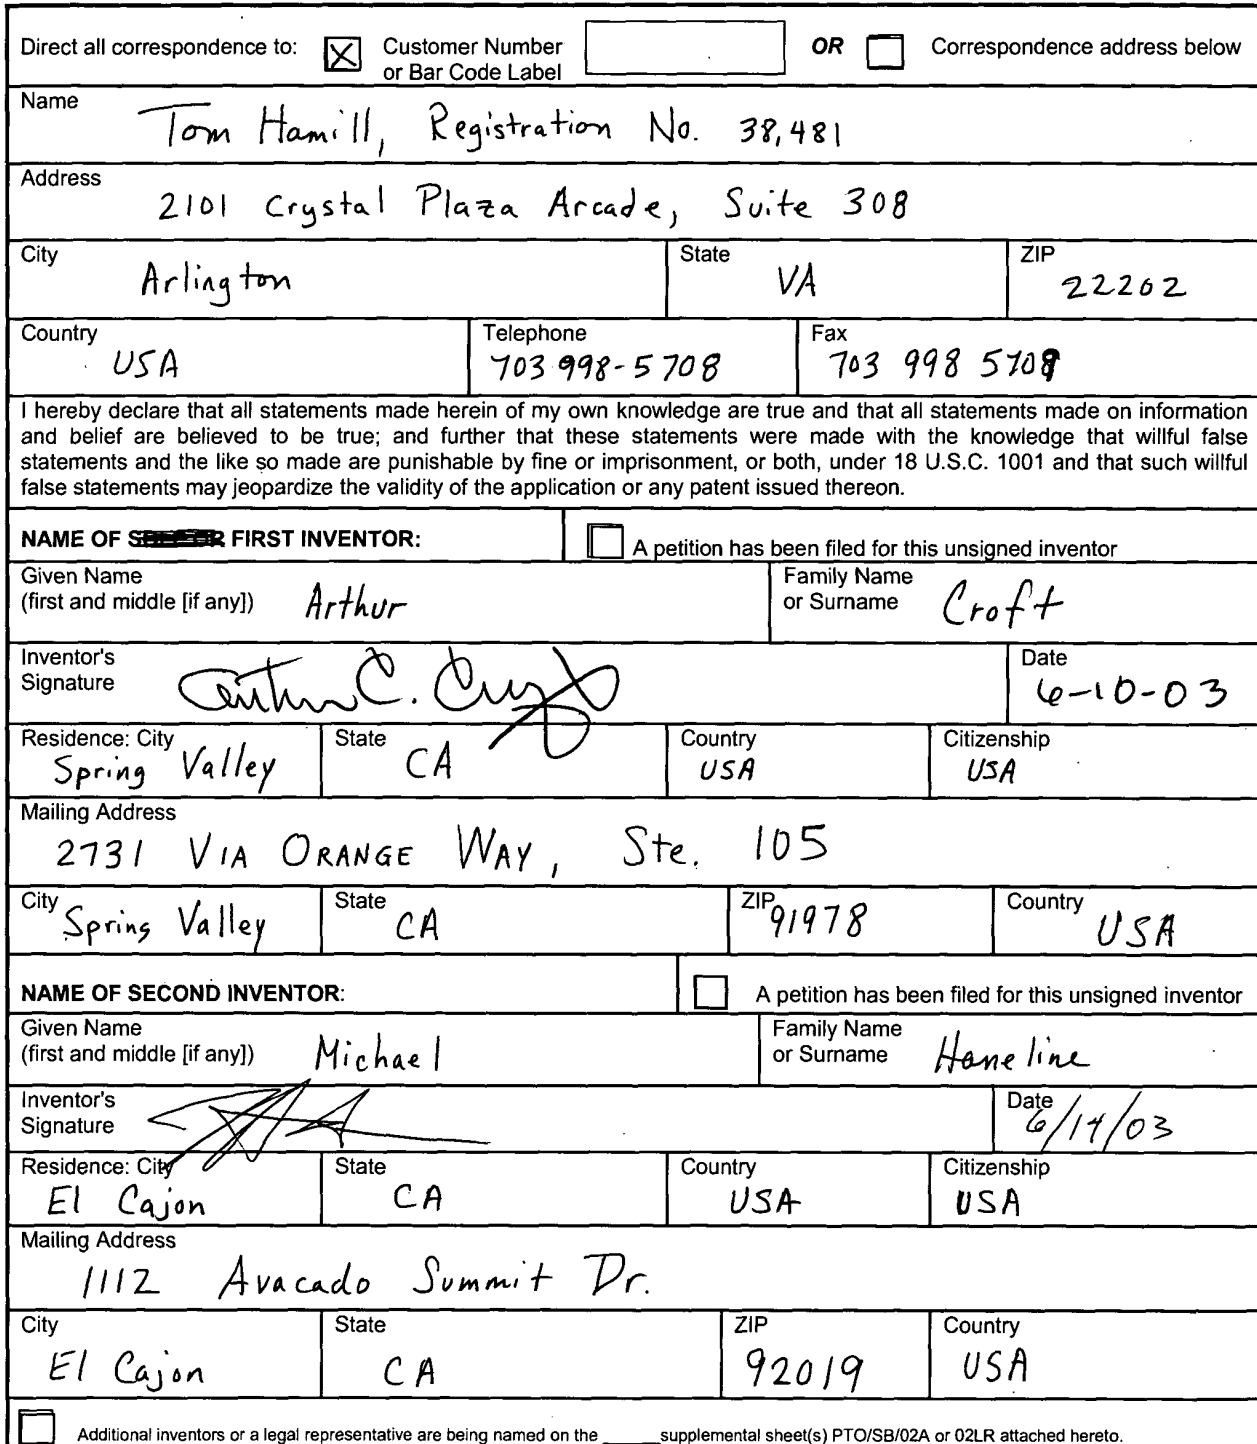 Direct all correspondence to: Customer Number OR Correspondence address below
or Bar Code Label
Name
Tom Hamill, Registration No. 38,481
Address
2101 Crystal Plaza Arcade, Suite 308
City State ZIP
Arlington VA 22202
Country Telephone Fax
USA 703 998-5708 703 998 5708
I hereby declare that all statements made herein of my own knowledge are true and that all statements made on information
and belief are believed to be true; and further that these statements were made with the knowledge that willful false
statements and the like so made are punishable by fine or imprisonment, or both, under 18 U.S.C. 1001 and that such willful
false statements may jeopardize the validity of the application or any patent issued thereon.
NAME OF FIRST INVENTOR: A petition has been filed for this unsigned inventor
Given Name Family Name
(first and middle [if any]) Arthur or Surname Croft
Inventor's Date
Signature 6-10-03
Residence: City State Country Citizenship
Spring Valley CA USA USA
Mailing Address
2731 VIA ORANGE WAY, Ste. 105
City State ZIP Country
Spring Valley CA 91978 USA
NAME OF SECOND INVENTOR: A petition has been filed for this unsigned inventor
Given Name Family Name
(first and middle [if any]) Michael or Surname Haneline
Inventor's Date
Signature 6/14/03
Residence: City State Country Citizenship
El Cajon CA USA USA
Mailing Address
1112 Avacado Summit Dr.
City State ZIP Country
El Cajon CA 92019 USA
Additional inventors or a legal representative are being named on the ______supplemental sheet(s) PTO/SB/02A or 02LR attached hereto.